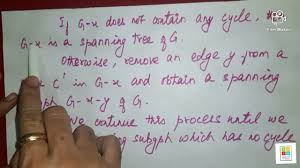 If G-x does not contain any cycle,
G-x is a spanning tree of G.
Otherwise, remove an edge y from a
C' in G-x and obtain a spanning
ph G-x-y of G.
we continue this process until we
ing subgph which has no cycle